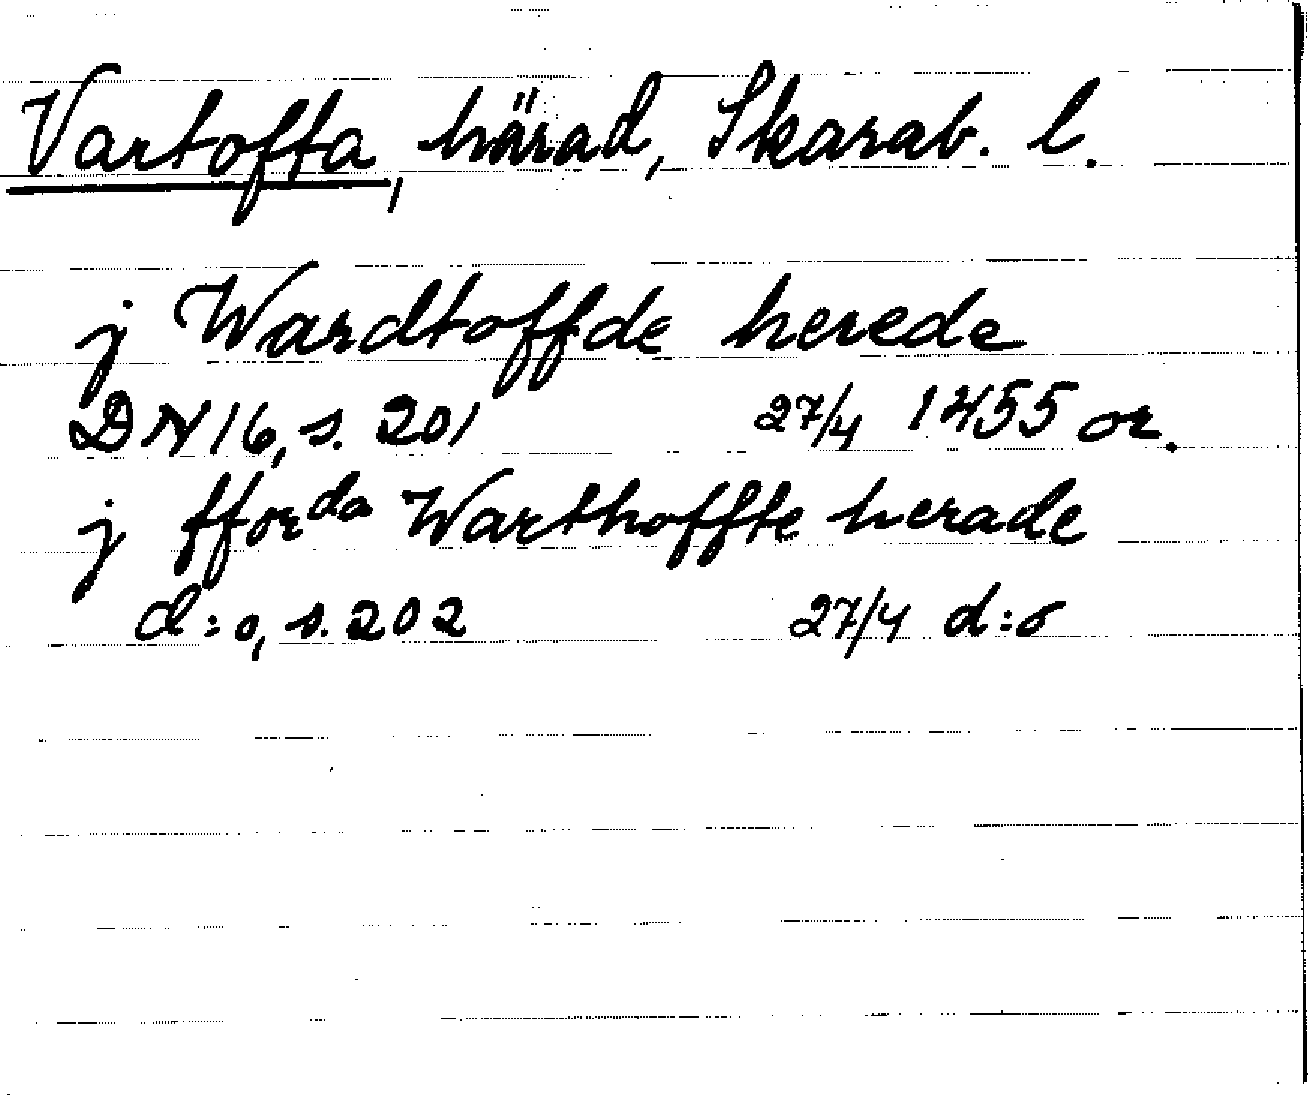 Vartofta, härad, Skarab. l.
j Wardtoffde herede
DN 16, s. 201 27/4 1455 or.
j fforda Warthoffte herade
d:o, s. 202 27/4 d:o